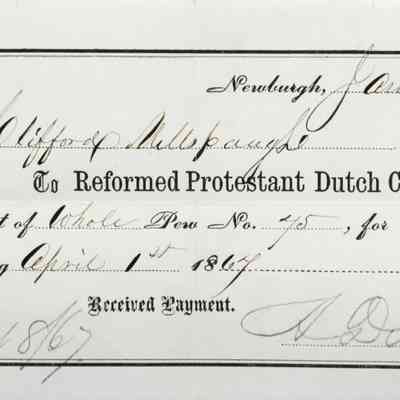 Newburgh, Jan
Clifford Millspaugh
To Reformed Protestant Dutch C
t of Whole Pew No. 75, for
g April 1st 1867
Received Payment.
18/67